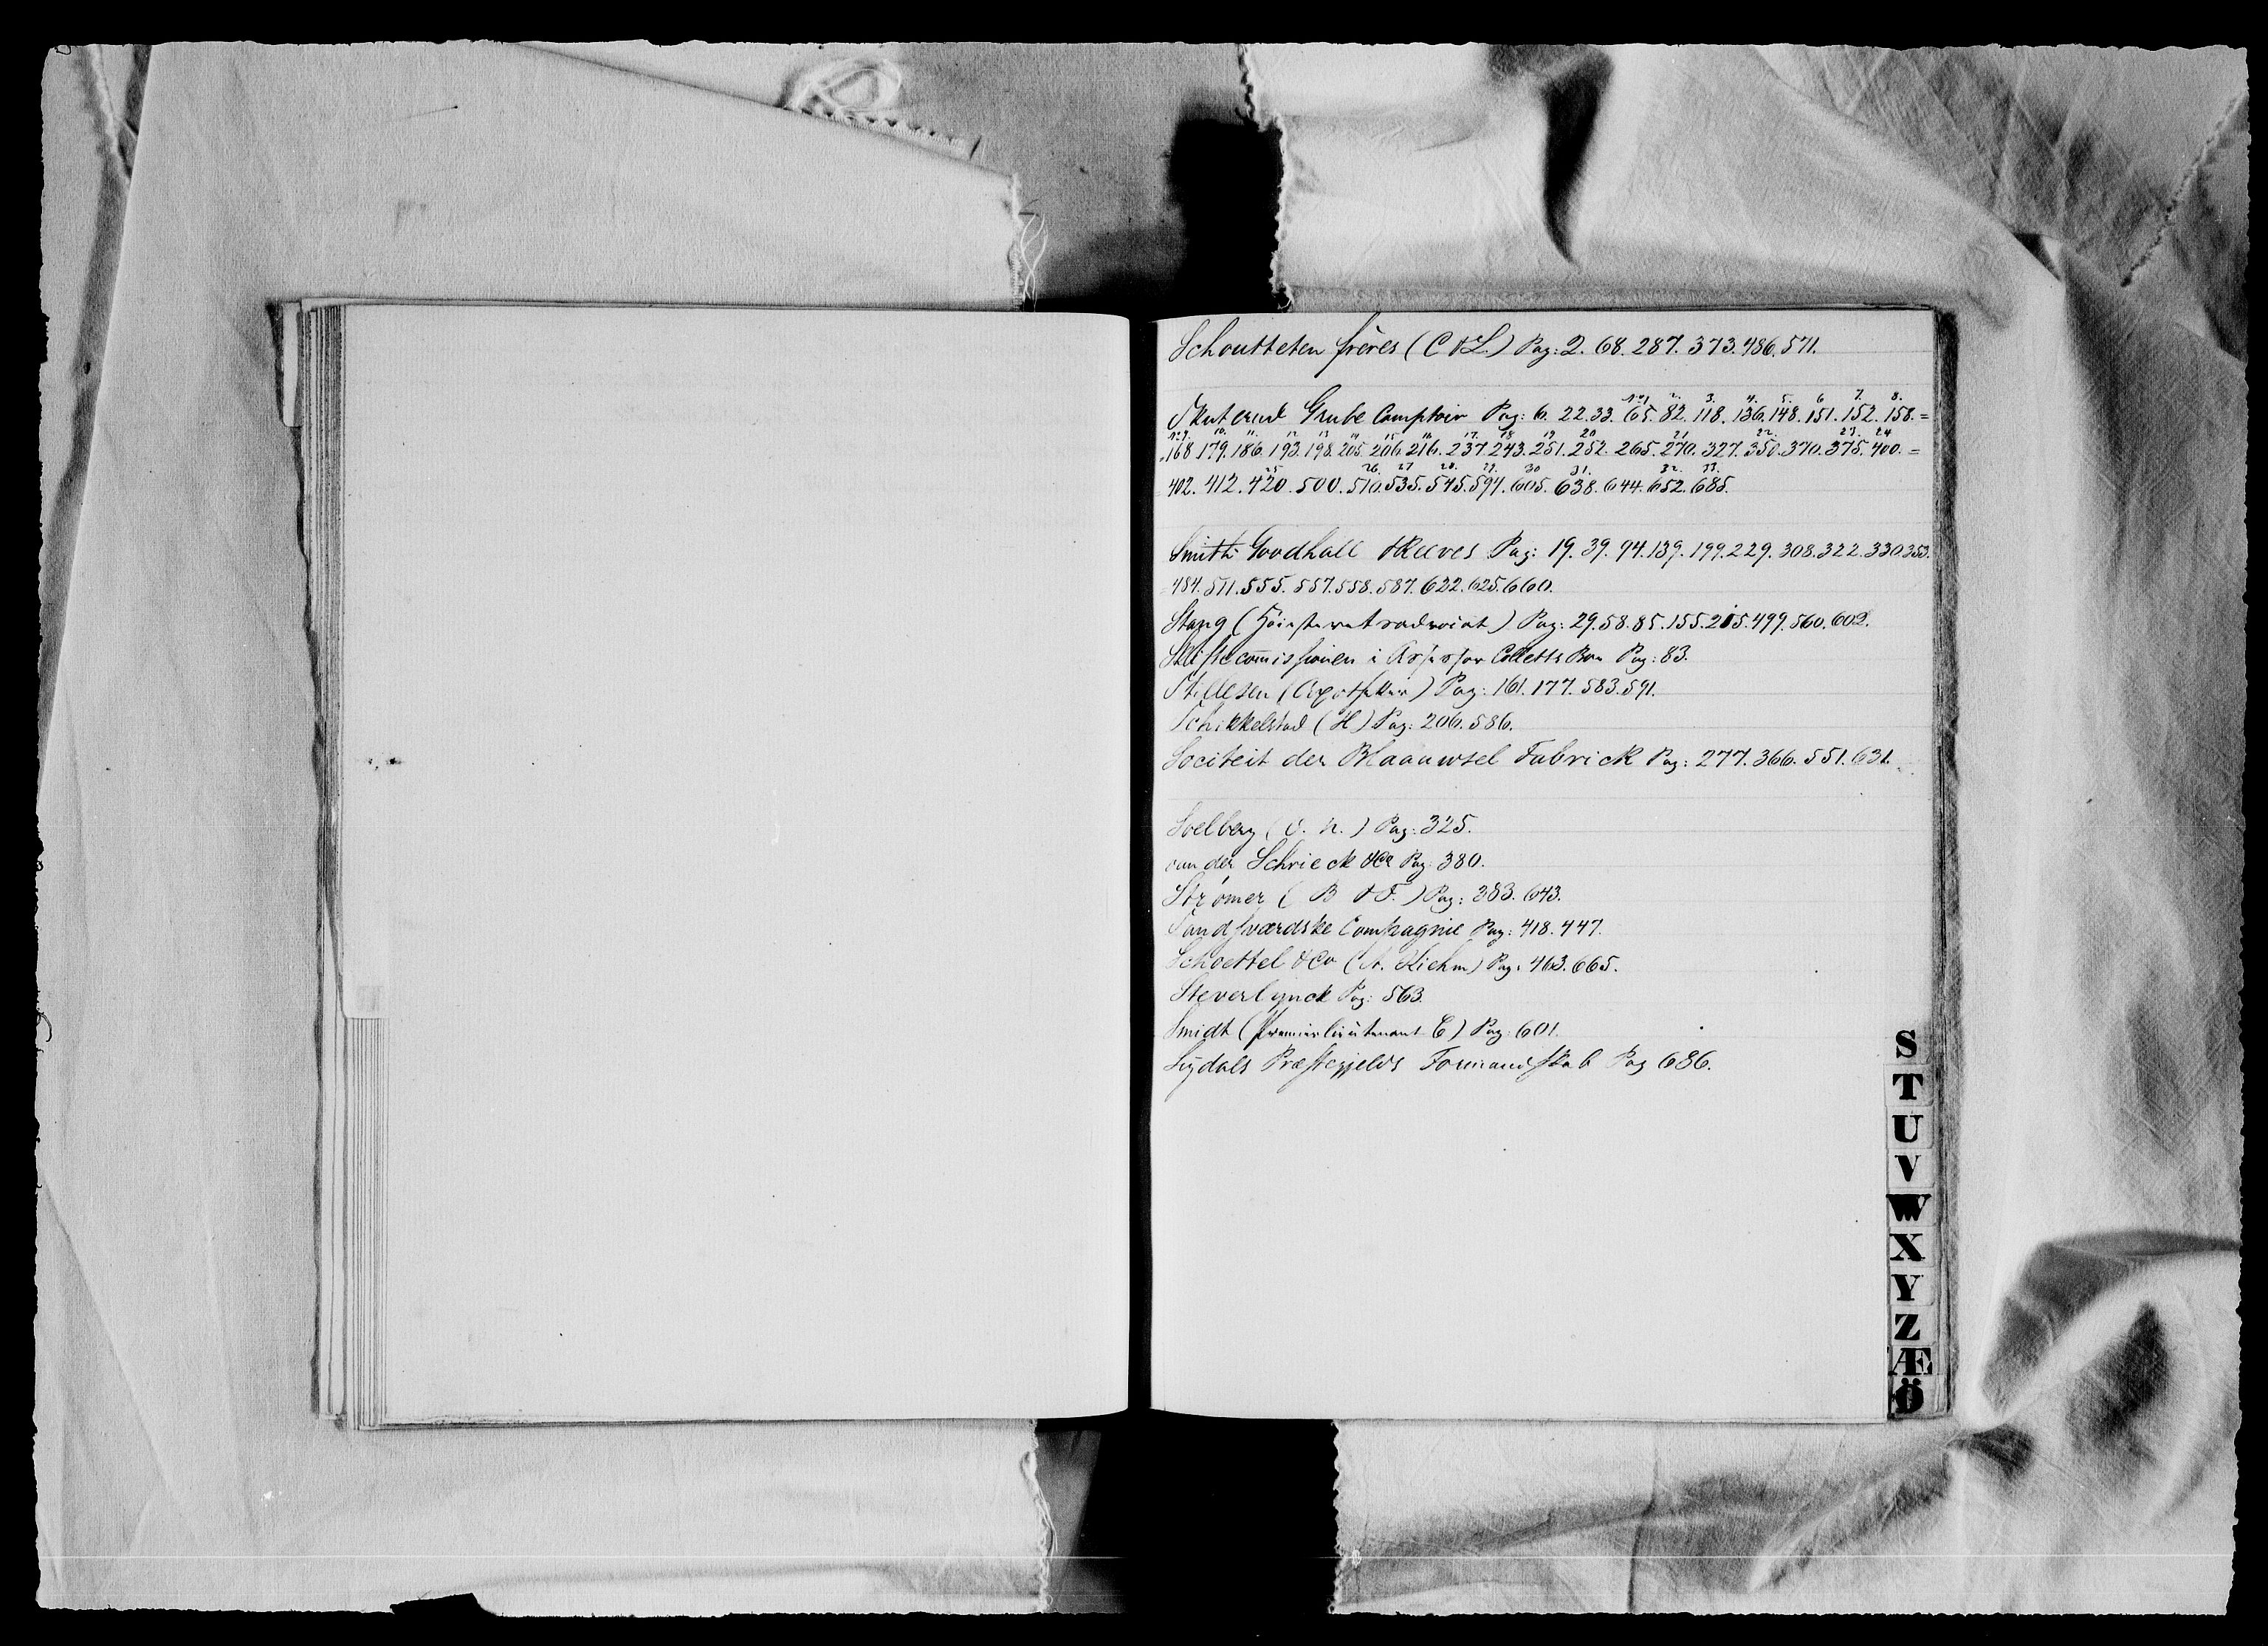 Schoutteten frères (C & L) Pag: 2. 68. 287. 373. 486. 571.
No 1 2. 3. 4. 5. 6 7. 8.
Skuterud Grube Comptoir Pag: 6. 22. 33. 65. 82. 118. 136. 148. 151. 152. 158. =
No 9. 10. 11. 12 13 14 15 16 17. 18 19 20 21 22. 23. 24
168 179. 186. 193. 198. 205. 206. 216. 237. 243. 251. 252. 265. 270. 327. 350. 370. 375. 400. =
25 26. 27 28. 29. 30 31. 32. 33.
402. 412. 420. 500. 510. 535. 545. 594. 605. 638. 644. 652. 685.
Smith Goodhall & Reeves Pag: 19. 39. 94. 139. 199. 229. 308. 322. 330. 353.
484. 511. 555. 557. 558. 587. 622. 625. 660.
Stang (Høiesteretsadvocat) Pag: 29. 58. 85. 155. 215. 499. 560. 602.
Skiftecom̄issionen i Assessor Colletts Bo Pag: 83.
Stillesen (Apotheker) Pag: 161. 177. 583. 591.
Schikkelstad (H) Pag: 206. 586.
Societeit der Blaauwsel Fabrick Pag: 277. 366. 551. 631.
Soelberg (O. N.) Pag: 325.
van der Schrieck & Co Pag: 380.
Strømer (B & F.) Pag: 383. 643.
Sandsværdske Compagnie Pag: 418. 447.
Schoettel & Co (A. Kiehm) Pag: 463. 665.
Steverlynck Pag: 563.
Smidt (Premierlieutenant C) Pag: 601.
Sigdals Præstegjelds Formandskab Pag 686.
S
T
U
V
W
X
Y
Z
Æ
Ö